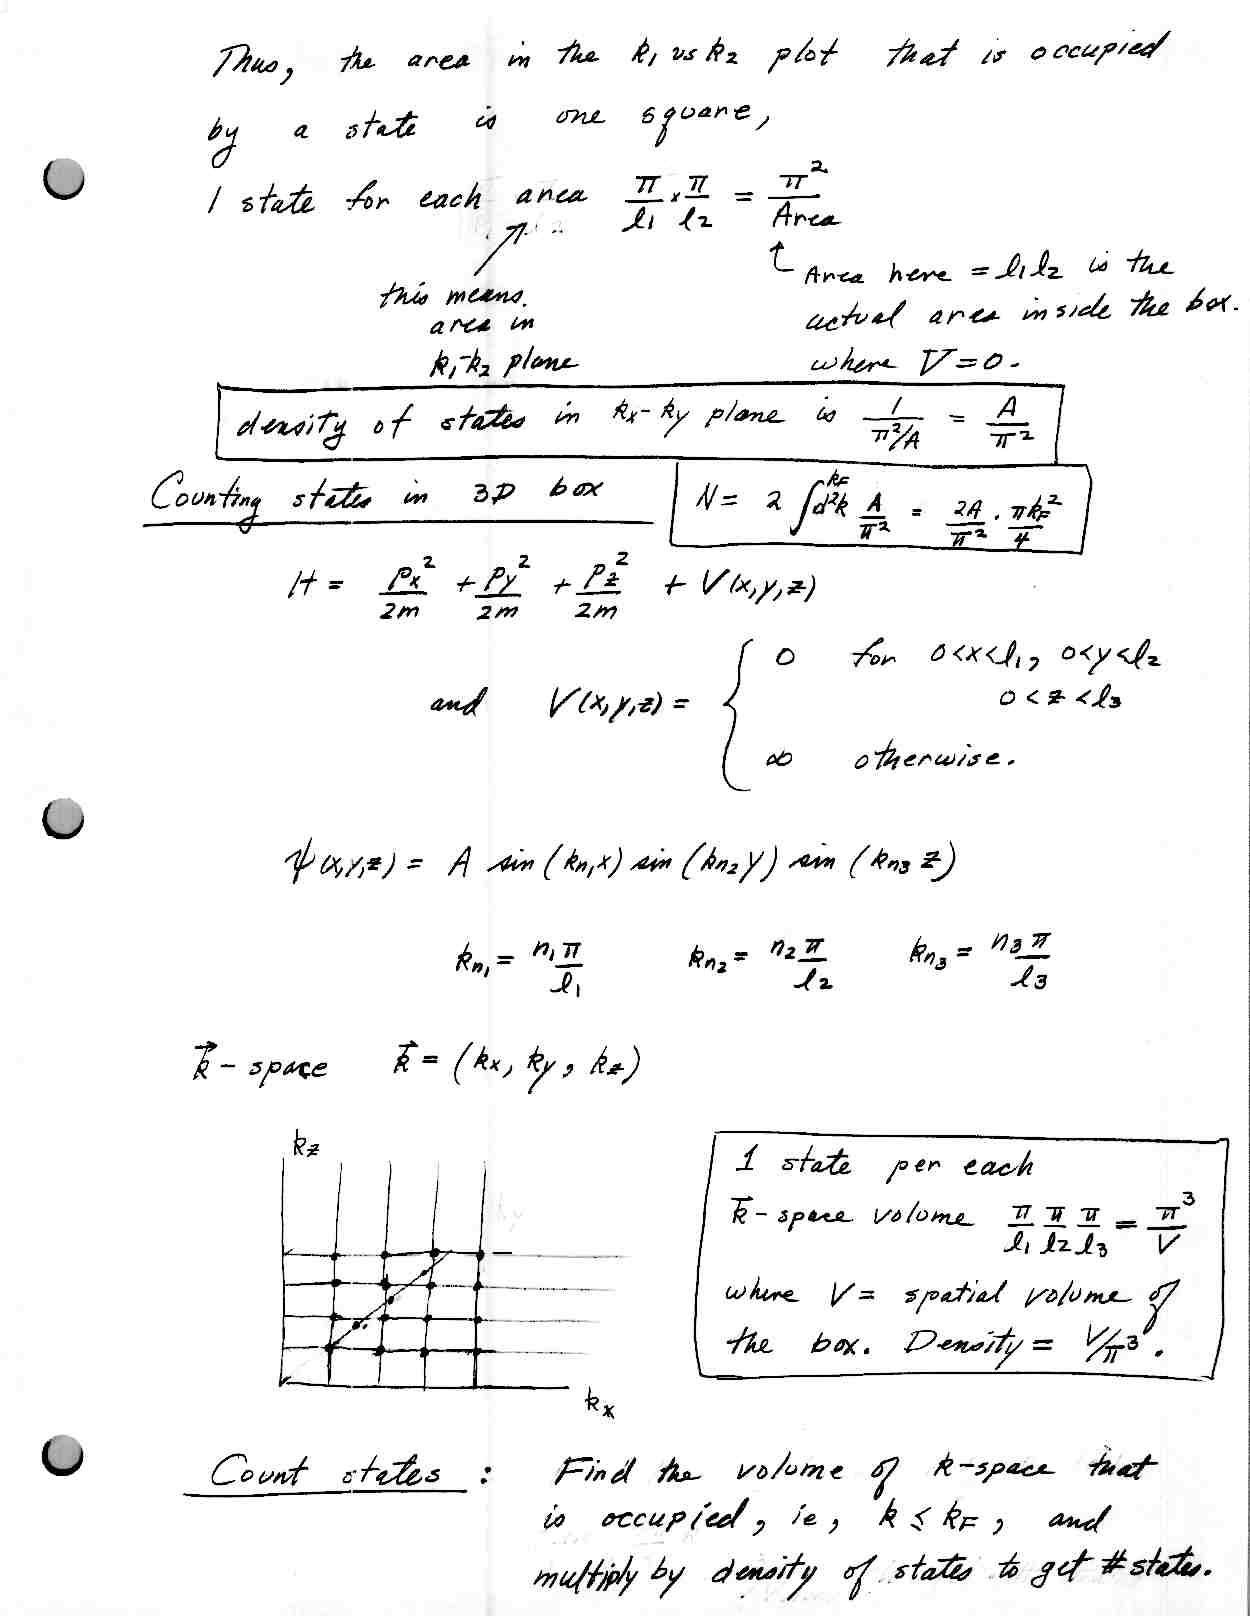 Thus, the area in the k₁ vs k₂ plot that is occupied
by a state is one square,
1 state for each area π/l₁ × π/l₂ = π²/Area
this means
area in
k₁-k₂ plane
Area here = l₁l₂ is the
actual area inside the box.
where V=0.
density of states in kx-ky plane is 1/(π²/A) = A/π²
Counting states in 3D box
N = 2 ∫^kF d²k A/π² = 2A/π² · πkF²/4
H = px²/2m + py²/2m + pz²/2m + V(x,y,z)
and V(x,y,z) = { 0 for 0<x<l₁, 0<y<l₂
0<z<l₃
∞ otherwise.
ψ(x,y,z) = A sin(kn₁x) sin(kn₂y) sin(kn₃z)
kn₁ = n₁π/l₁ kn₂ = n₂π/l₂ kn₃ = n₃π/l₃
k⃗-space k⃗ = (kx, ky, kz)
kz
kx
1 state per each
k⃗-space volume π/l₁ π/l₂ π/l₃ = π³/V
where V = spatial volume of
the box. Density = V/π³.
Count states: Find the volume of k-space that
is occupied, ie, k ≤ kF, and
multiply by density of states to get # states.